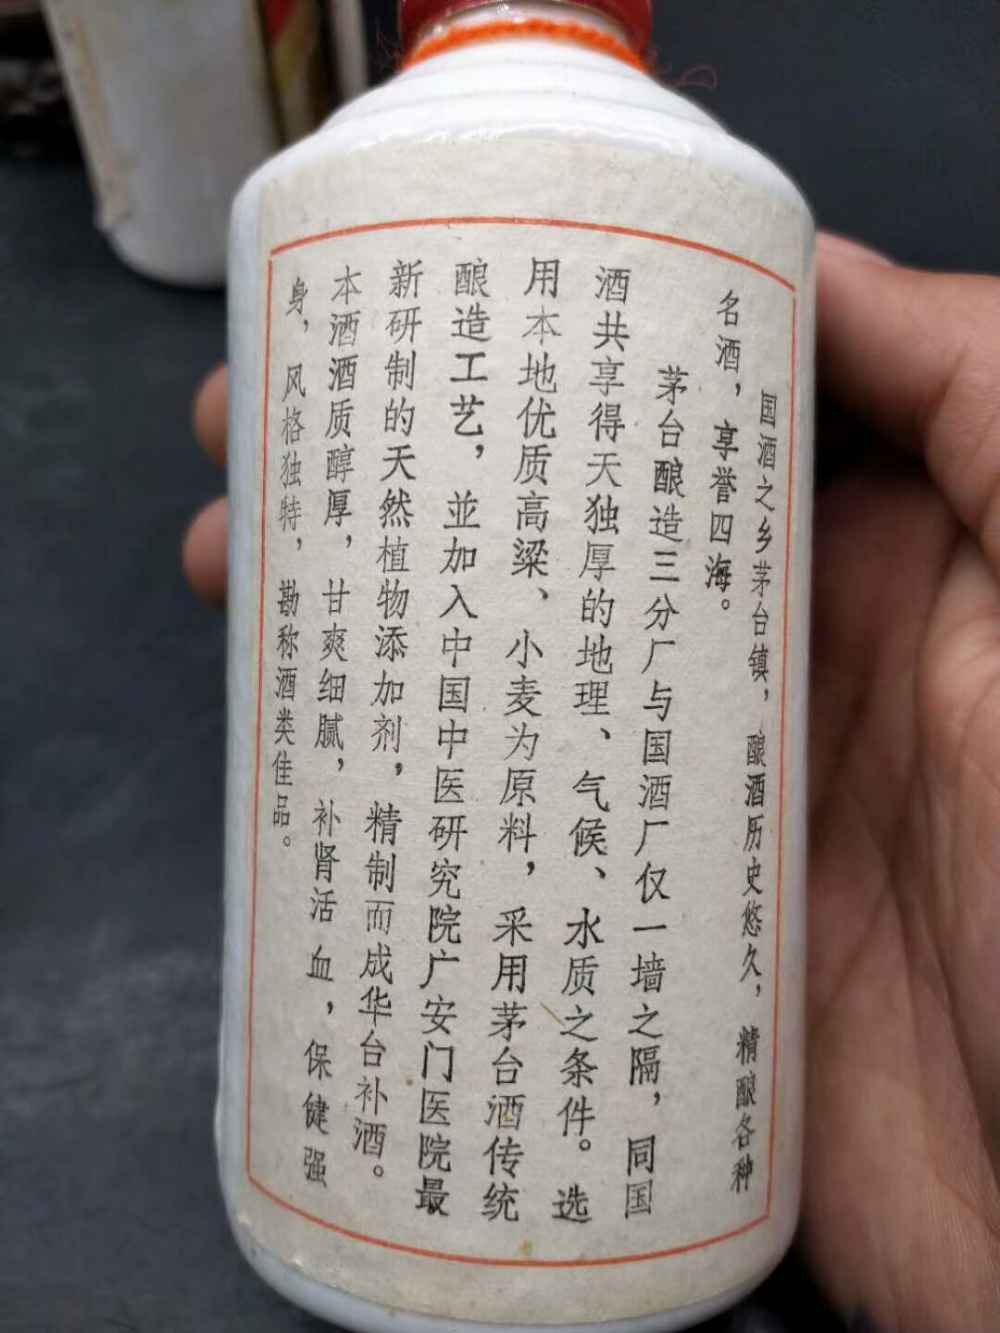 国酒之乡茅台镇，酿酒历史悠久，精酿各种
名酒，享誉四海。
茅台酿造三分厂与国酒厂仅一墙之隔，同国
酒共享得天独厚的地理、气候、水质之条件。选
用本地优质高粱、小麦为原料，采用茅台酒传统
酿造工艺，並加入中国中医研究院广安门医院最
新研制的天然植物添加剂，精制而成华台补酒。
本酒酒质醇厚，甘爽细腻，补肾活血，保健强
身，风格独特，勘称酒类佳品。